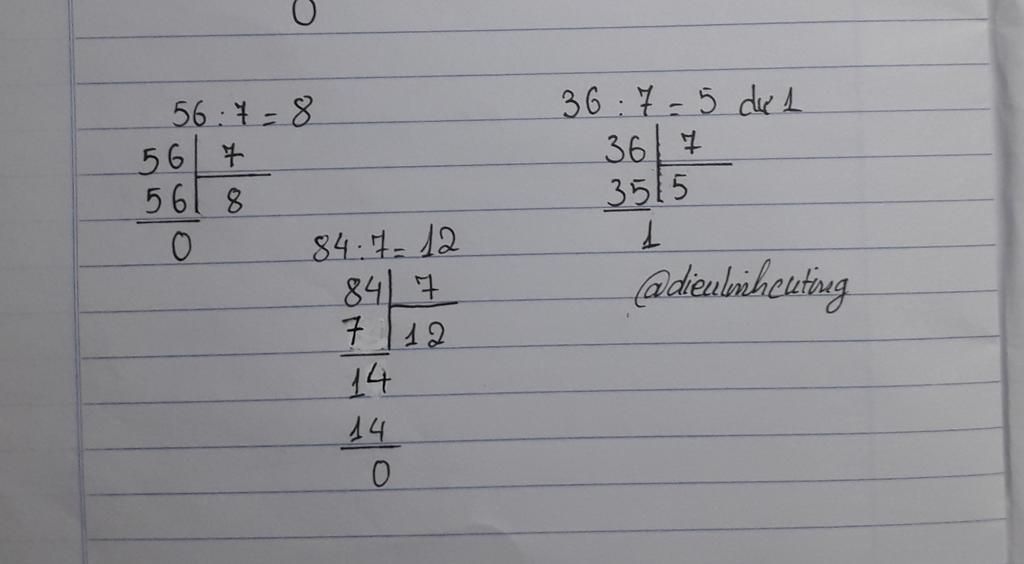 0
56 : 7 = 8
56 7
56 8
0
36 : 7 = 5 dư 1
36 7
35 5
1
84 : 7 = 12
84 7
7 12
14
14
0
@dieulinhcuting